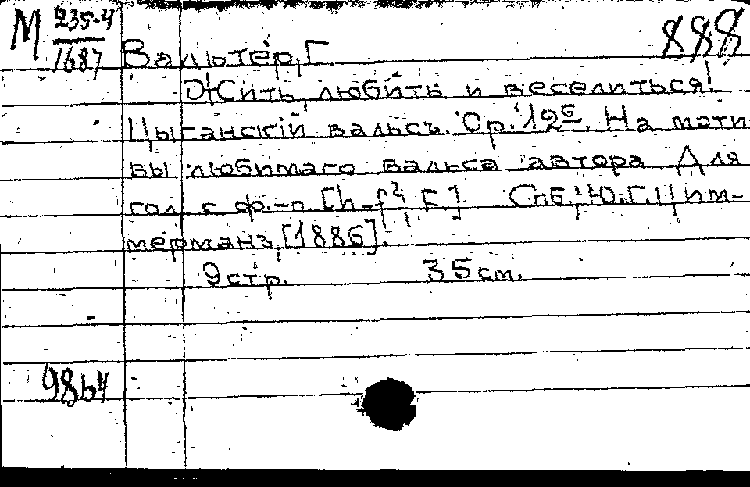 М 235-4
1687
888
Вальтер, Г.
Жить, любить и веселиться!
Цыганскій вальсъ. Op. 12 б. На моти
вы любимаго вальса автора Для
гол. с ф.-п [h-f² G.] Спб, Ю. Г. Цим-
мерманъ, [1886].
9 стр. 35 cm.
9864